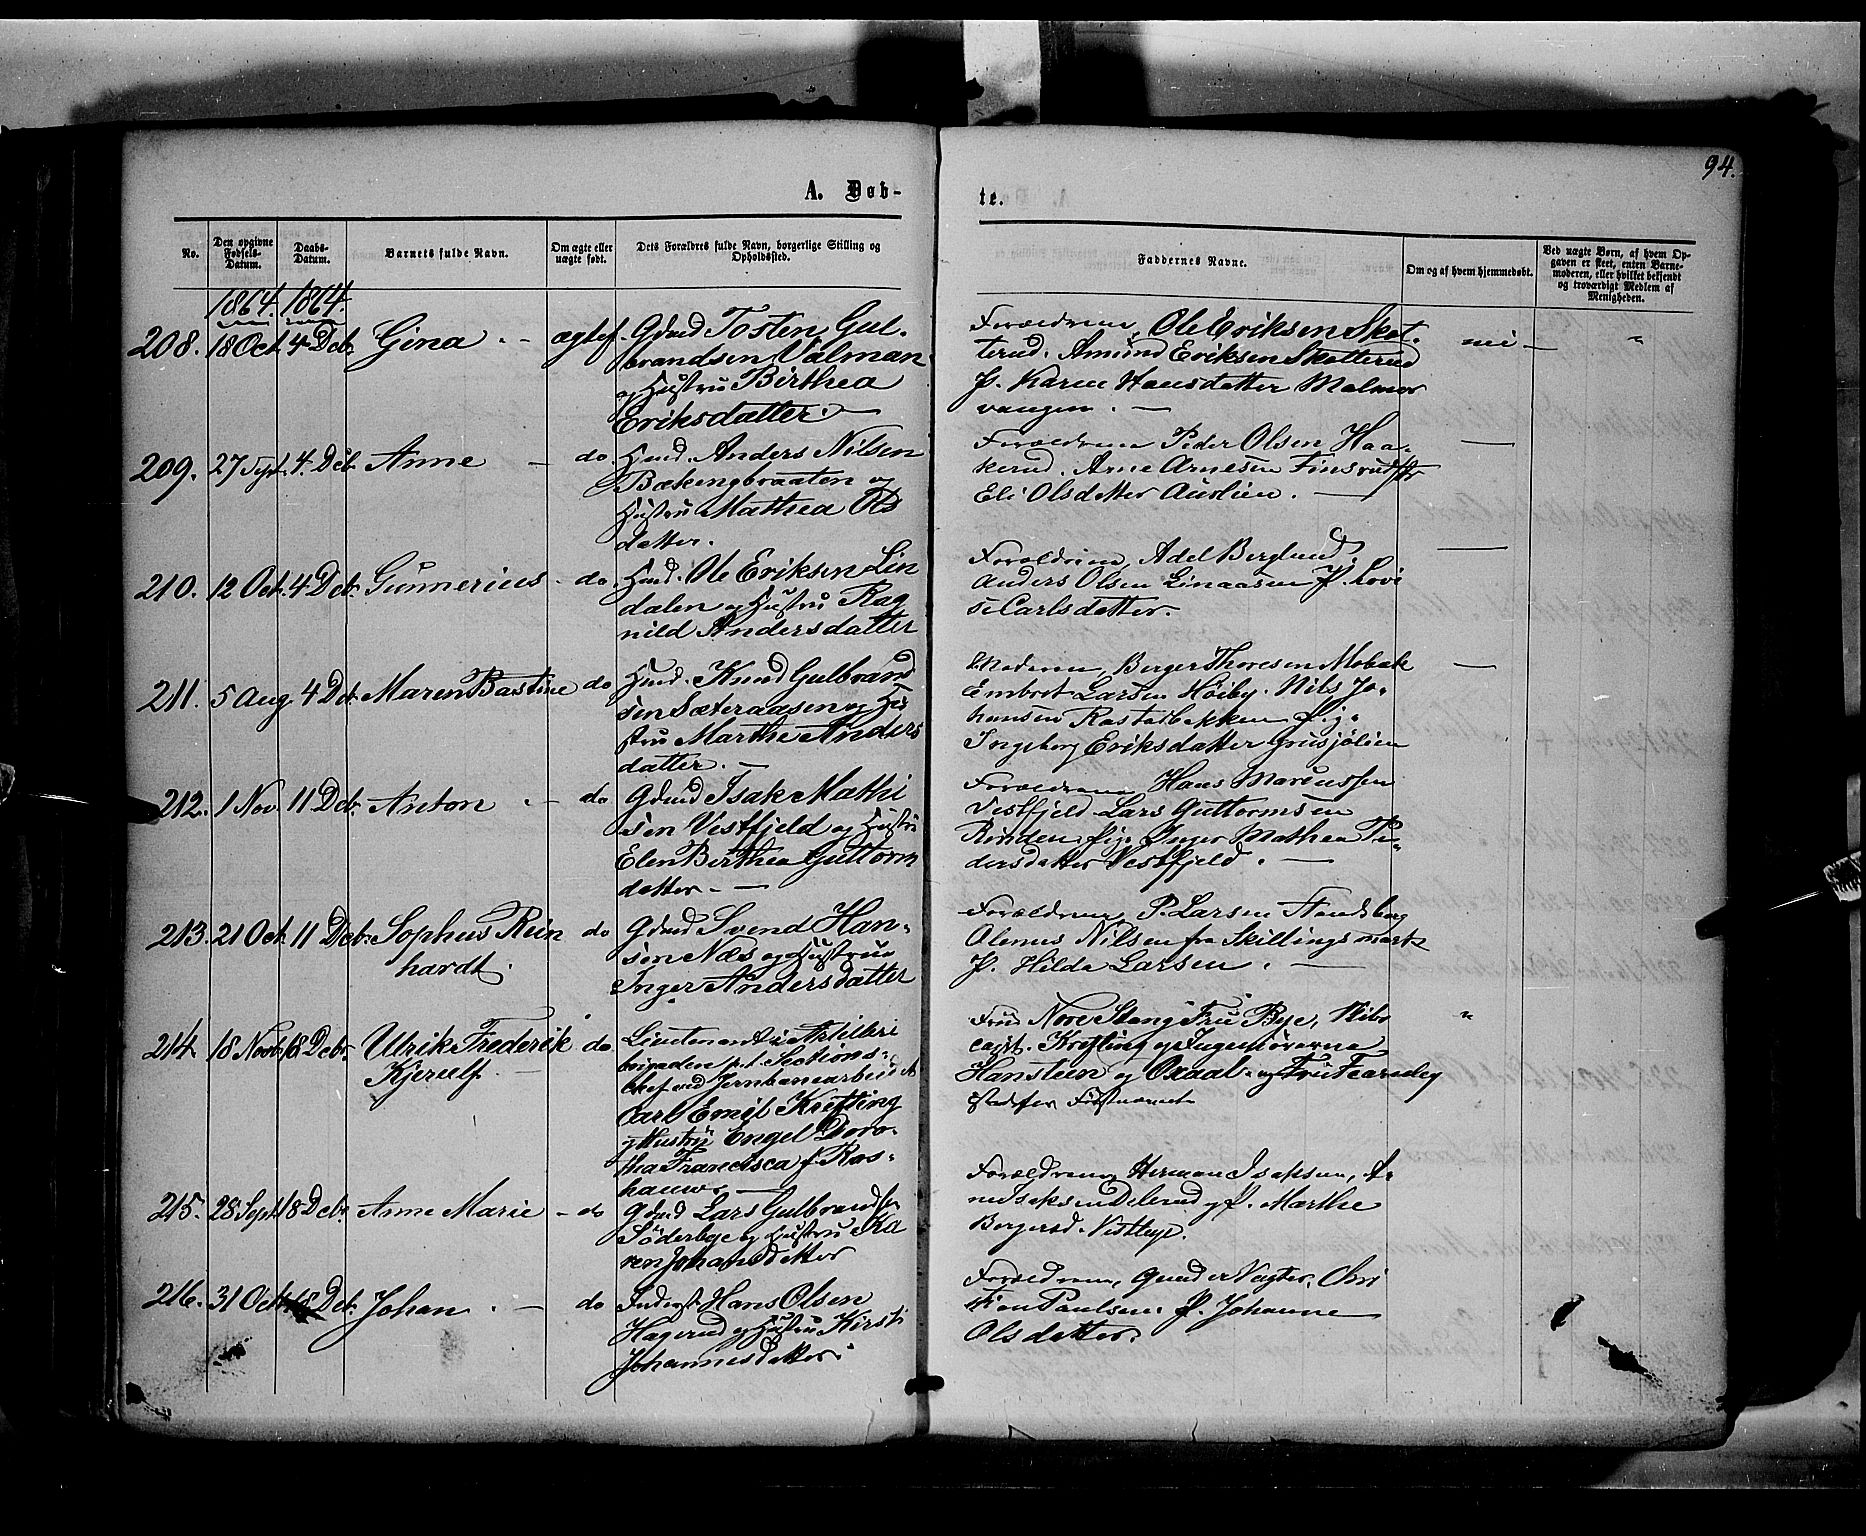 94.
A. Døb-
te.
No.
Den opgivne Fødsels-Datum.
Daabs-Datum.
Barnets fulde Navn.
Om ægte eller uægte født.
Dets Forældres fulde Navn, borgerlige Stilling og Opholdssted.
Faddernes Navne.
Om og af hvem hjemmedøbt.
Ved uægte Børn, af hvem Opgaven er skeet, enten Barnemoderen, eller hvilket bekjendt og troværdigt Medlem af Menigheden.
1864. 1864.
208. 18 Oct. 4 Deb. Gina - ægtef.
Gbrud Tosten Gul-
brandsen Valman
og Hustru Birthea
Eriksdatter. -
Forældrene, Ole Eriksen Skot-
terud. Amund Eriksen Skotterud
P. Karen Hansdatter Malmer
vangen. -
nei -
"
209. 27 Sept. 4. Deb. Anne - do
Hmd. Anders Nilsen
Bækengbraaten og
Hustru Mathea Ols
datter.
Forældrene Peder Olsen Haa-
kerud. Arne Arnesen Finsrud
Eli Olsdatter Aurlien. -
210. 12 Oct. 4 Deb. Gunnerius - do
Hmd. Ole Eriksen Lin
dalen og Hustru Rag
nild Andersdatter
Forældrene, Adel Berglund,
Anders Olsen Linaasen P. Lovi
se Carlsdatter.
211. 5 Aug. 4 Deb. Maren Bastine do
Hmd. Knud Gulbrand
sen Sæteraasen og Hu
stru Marthe Anders
datter. -
Moderen, Berger Thoresen Mobæk
Embret Larsen Høiby. Nils Jo-
hansen Rastabakken Pig.
Ingeborg Eriksdatter Grusjølien
212. 1 Nov. 11 Deb. Anton - do
Gbrud Isak Mathi
sen Vestfjeld og Hustru
Elen Birthea Guttorm
datter. -
Forældrene Hans Marcussen
Vestfjeld Lars Guttormsen
Rønden Pig. Inger Mathea Pe-
dersdatter Vestfjeld. -
213. 21 Oct. 11 Deb. Sophus Rein
hardt. do
Gbrud Svend Han-
sen Næs og Hustrue
Inger Andersdatter
Forældrene, P. Larsen
Olenus Nilsen fra Skillingsmark
P. Hilda Larsen. -
214. 18 Novb. 18 Debr. Ulrik Frederik
Kjerulf - do
Lieutenant i Artilleri
brigaden p.t. Sections-
chef ved Jernbanearbeidet
Carl Emil Krefting
og Hustru Engel Doro-
thea Francisca f. Ras-
hauw -
Fru Nore Stang Fru Bye,
Krefting og Ingeniørerne
Hansteen og Oxaal og Fru Fearnley
istedfor Førstnævnte
"
215. 28 Sept. 18 Debr. Anne Marie - do
Gbrud Lars Gulbrandsen
Søderbye og Hustru Ka
ren Johansdatter
Forældrene, Herman Isaksen, A-
ne Isaksen Delerud og P. Marthe
Bergersd. Vestbye.
216. 31 Oct. 18 Deb. Johan - do
Inderst Hans Olsen
Hagerud og Hustru Kirsti
Johannesdatter.
Forældrene, Gunder Vagter, Chri
stian Paulsen P. Johanne
Olsdatter.